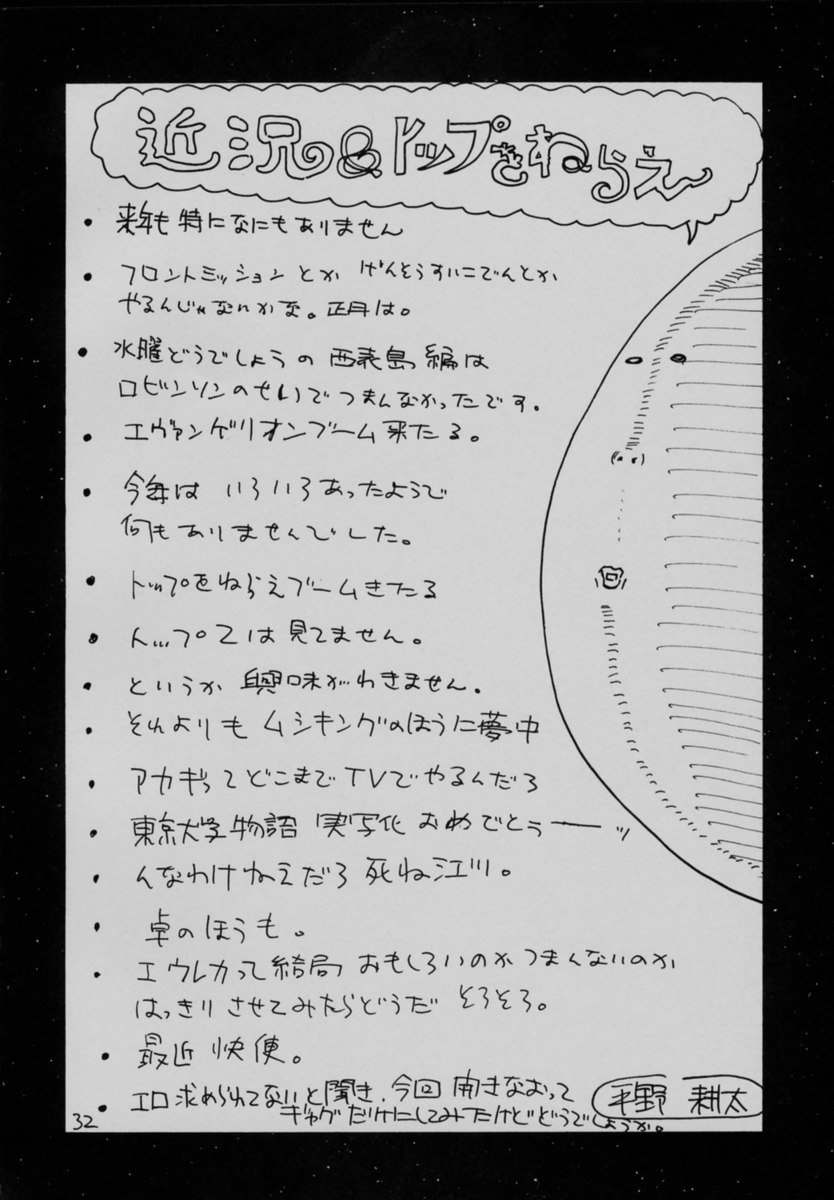 近況&トップをねらえ〜
・来年も特になにもありません
・フロントミッションとか げんそうすいこでんとか
やるんじゃないかな。正月は。
・水曜どうでしょうの西表島編は
ロビンソンのせいでつまんなかったです。
・エヴァンゲリオンブーム来たる。
・今年は いろいろあったようで
何もありませんでした。
・トップをねらえブームきたる
・トップ2は見てません。
・というか 興味がわきません。
・それよりも ムシキングのほうに夢中
・アカギってどこまでTVでやるんだろ
・東京大学物語 実写化 おめでとぅーーッ
・んなわけねえだろ 死ね江川。
・卓のほうも。
・エウレカって結局 おもしろいのか つまんないのか
はっきりさせてみたらどうだ そろそろ。
・最近 快便。
・エロ求められてないと聞き、今回 開きなおって
ギャグだけにしてみたけどどうでしょうか。
平野 耕太
32